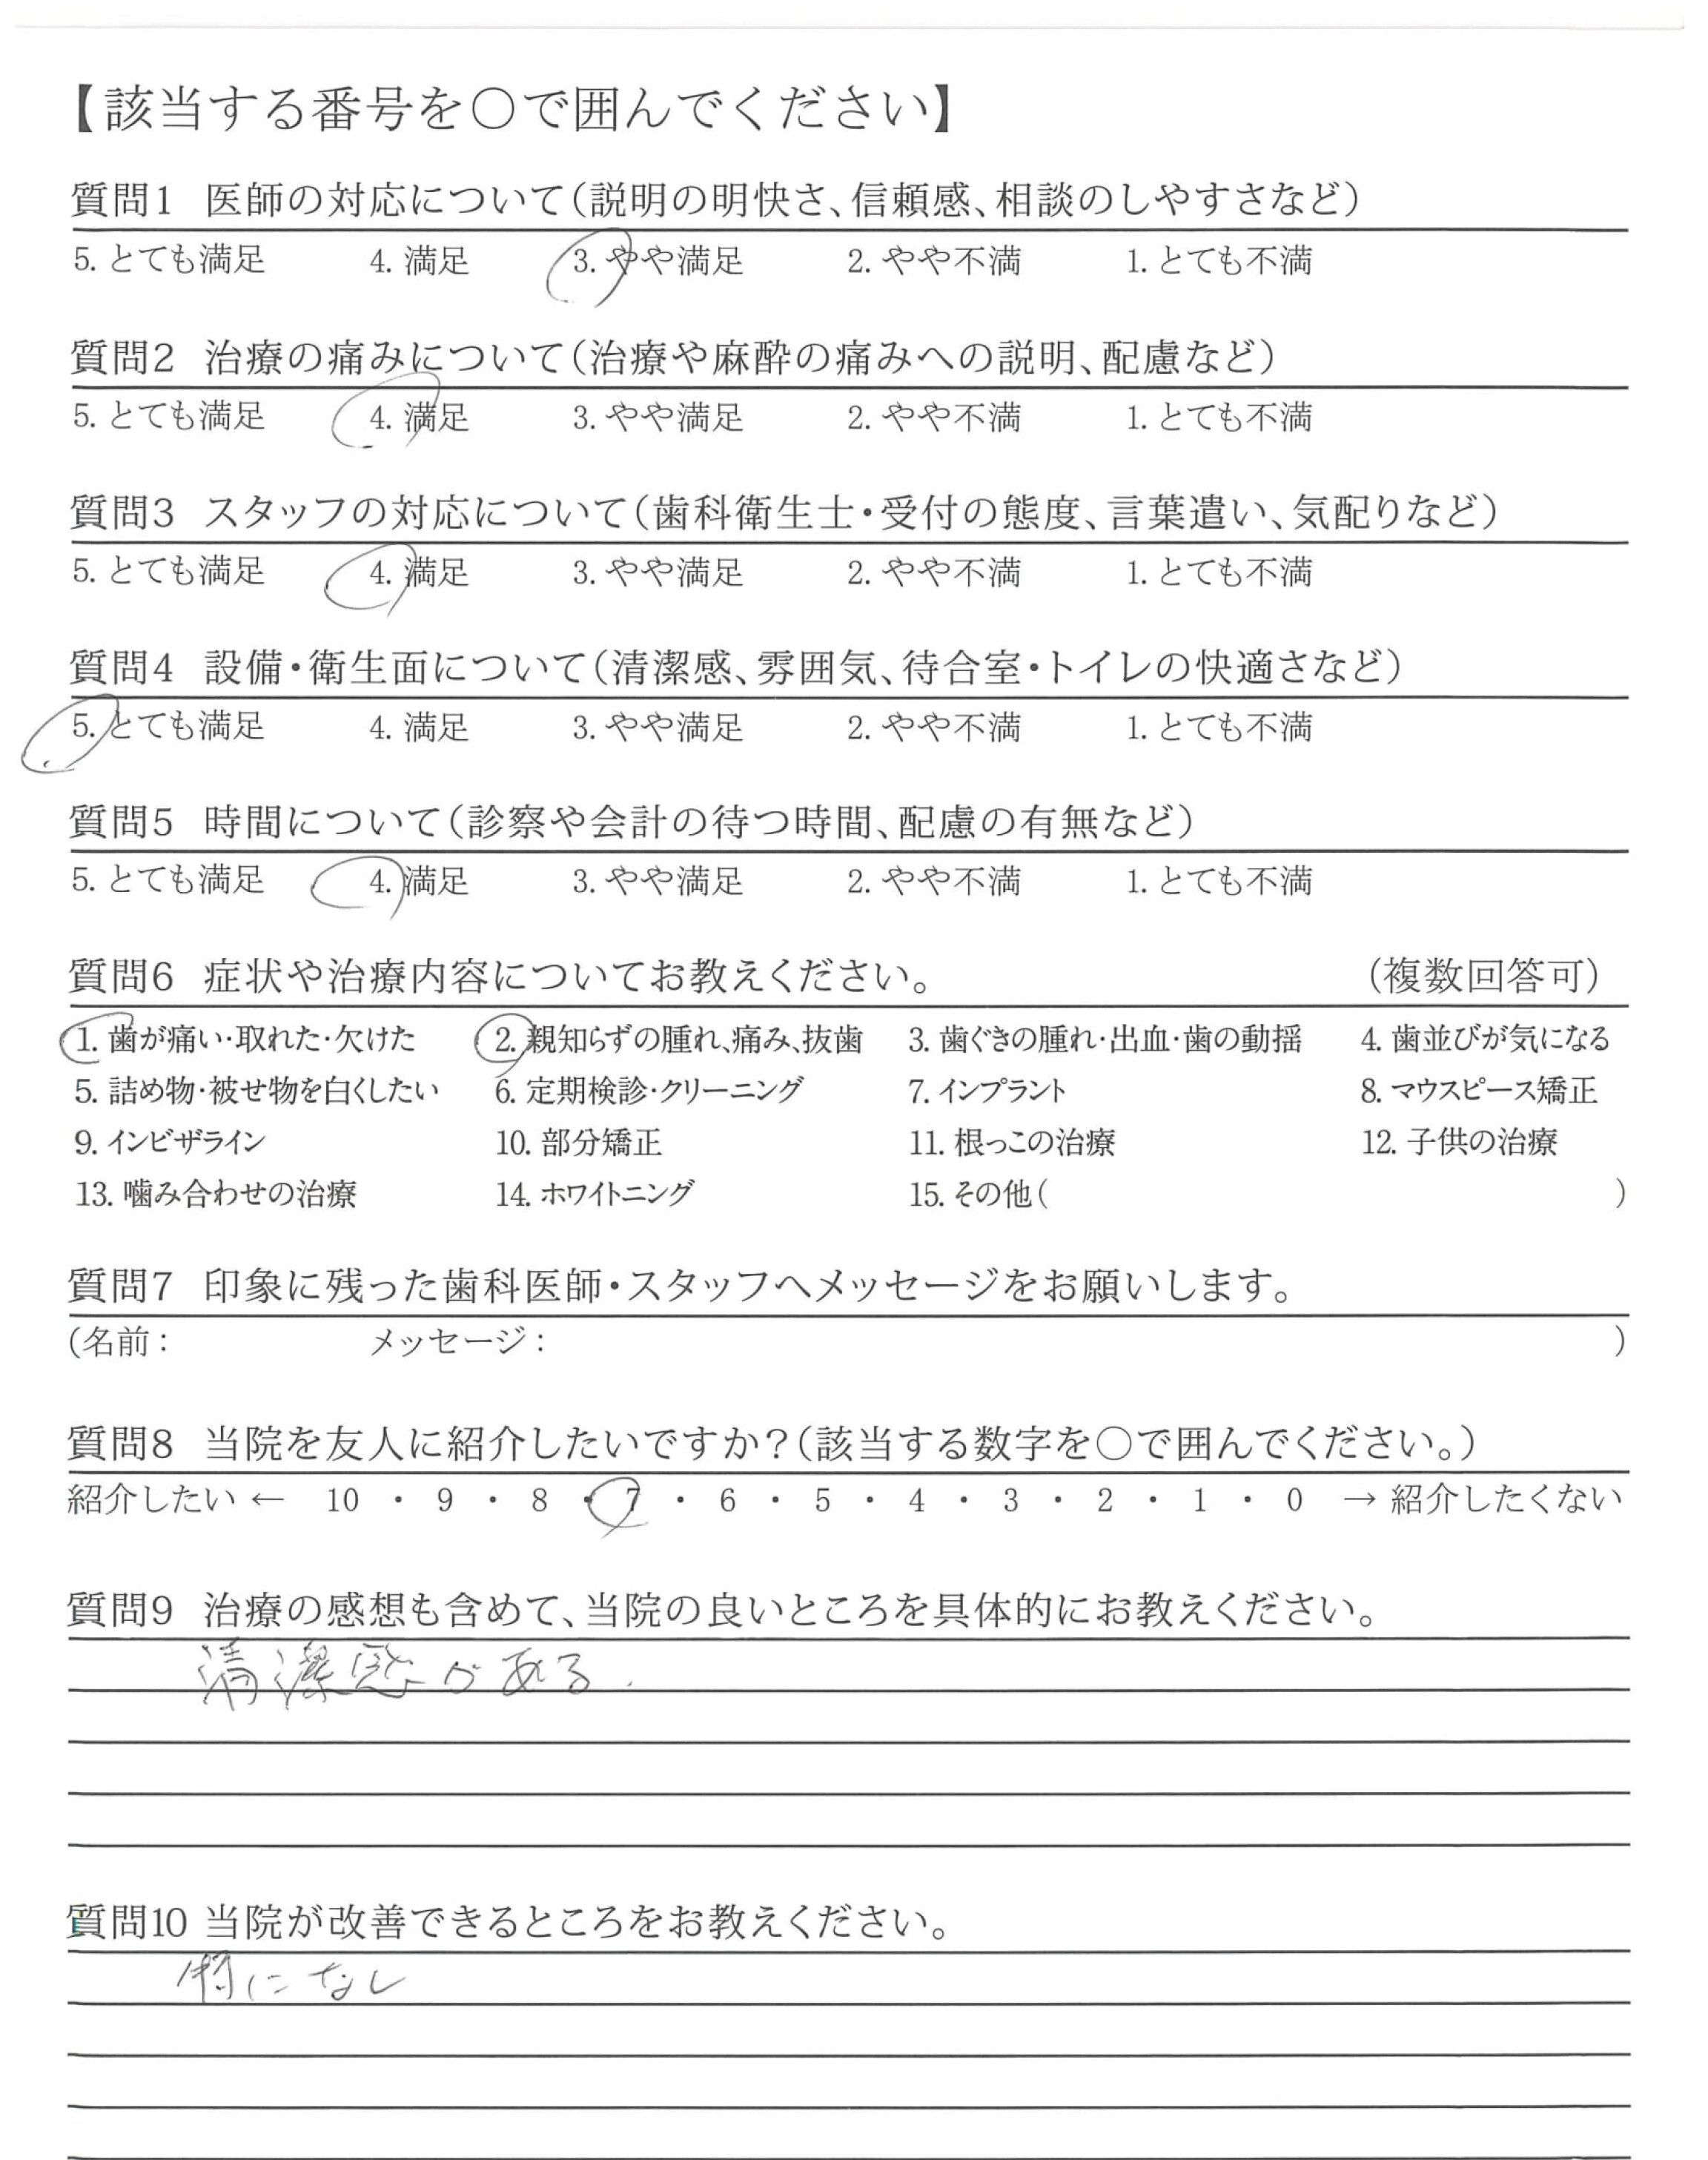 【該当する番号を○で囲んでください】
質問1 医師の対応について(説明の明快さ、信頼感、相談のしやすさなど)
5. とても満足 4. 満足 3. やや満足 2. やや不満 1. とても不満
質問2 治療の痛みについて(治療や麻酔の痛みへの説明、配慮など)
5. とても満足 4. 満足 3. やや満足 2. やや不満 1. とても不満
質問3 スタッフの対応について(歯科衛生士・受付の態度、言葉遣い、気配りなど)
5. とても満足 4. 満足 3. やや満足 2. やや不満 1. とても不満
質問4 設備・衛生面について(清潔感、雰囲気、待合室・トイレの快適さなど)
5. とても満足 4. 満足 3. やや満足 2. やや不満 1. とても不満
質問5 時間について(診察や会計の待つ時間、配慮の有無など)
5. とても満足 4. 満足 3. やや満足 2. やや不満 1. とても不満
質問6 症状や治療内容についてお教えください。 (複数回答可)
1. 歯が痛い・取れた・欠けた 2. 親知らずの腫れ、痛み、抜歯 3. 歯ぐきの腫れ・出血・歯の動揺 4. 歯並びが気になる
5. 詰め物・被せ物を白くしたい 6. 定期検診・クリーニング 7. インプラント 8. マウスピース矯正
9. インビザライン 10. 部分矯正 11. 根っこの治療 12. 子供の治療
13. 噛み合わせの治療 14. ホワイトニング 15. その他( )
質問7 印象に残った歯科医師・スタッフへメッセージをお願いします。
(名前: メッセージ: )
質問8 当院を友人に紹介したいですか?(該当する数字を○で囲んでください。)
紹介したい ← 10 ・ 9 ・ 8 ・ 7 ・ 6 ・ 5 ・ 4 ・ 3 ・ 2 ・ 1 ・ 0 → 紹介したくない
質問9 治療の感想も含めて、当院の良いところを具体的にお教えください。
清潔感がある.
質問10 当院が改善できるところをお教えください。
特になし